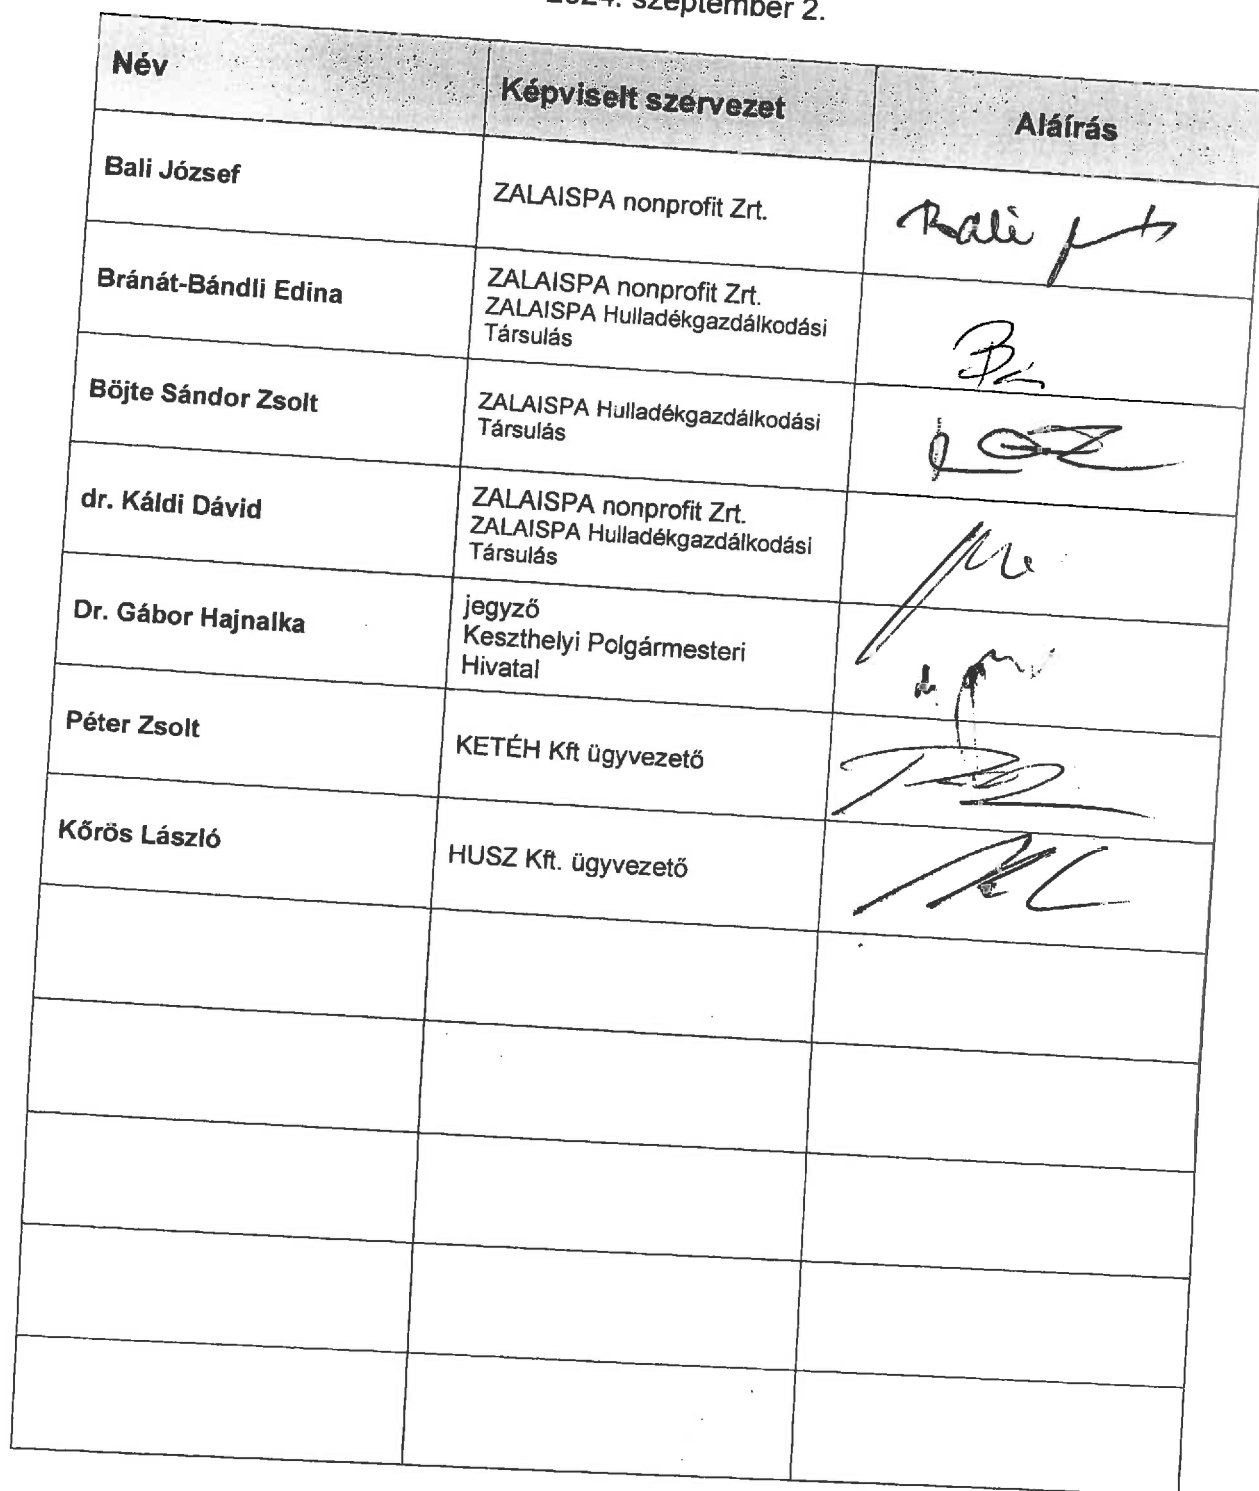 2024. szeptember 2.
Név
Képviselt szervezet
Aláírás
Bali József
ZALAISPA nonprofit Zrt.
Bali
Bránát-Bándli Edina
ZALAISPA nonprofit Zrt.
ZALAISPA Hulladékgazdálkodási
Társulás
Böjte Sándor Zsolt
ZALAISPA Hulladékgazdálkodási
Társulás
dr. Káldi Dávid
ZALAISPA nonprofit Zrt.
ZALAISPA Hulladékgazdálkodási
Társulás
Dr. Gábor Hajnalka
jegyző
Keszthelyi Polgármesteri
Hivatal
Péter Zsolt
KETÉH Kft ügyvezető
Kőrös László
HUSZ Kft. ügyvezető